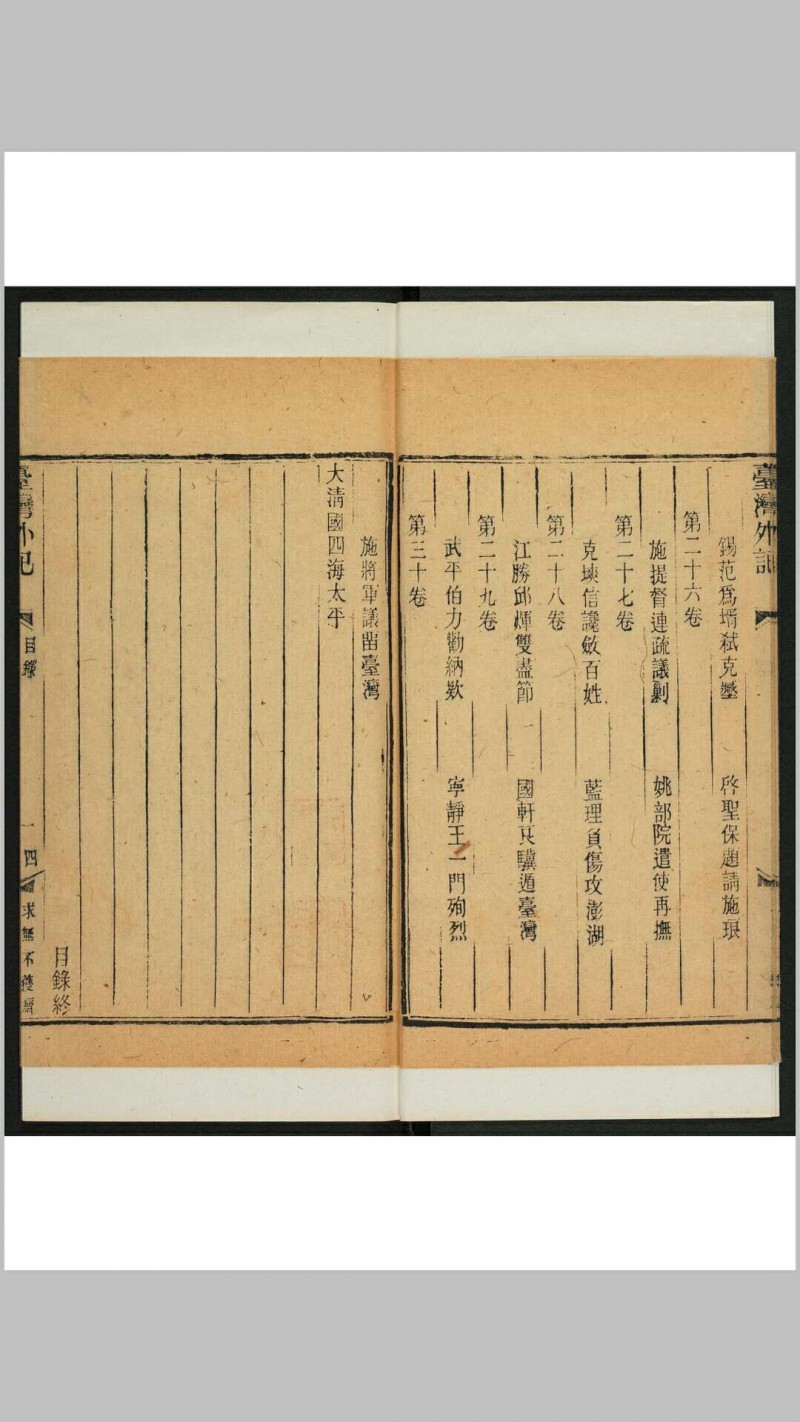 臺灣外記
錫范爲壻弑克𡒉 啓聖保題請施琅
第二十六卷
施提督連疏議剿 姚部院遣使再撫
第二十七卷
克塽信讒斂百姓 藍理負傷攻澎湖
第二十八卷
江勝邱煇雙盡節 國軒兵驥遁臺灣
第二十九卷
武平伯力勸納欵 寜靜王一門殉烈
第三十卷
施將軍議畱臺灣
大清國四海太平
目錄終
臺灣外記 目錄 一 四 求無不獲齋